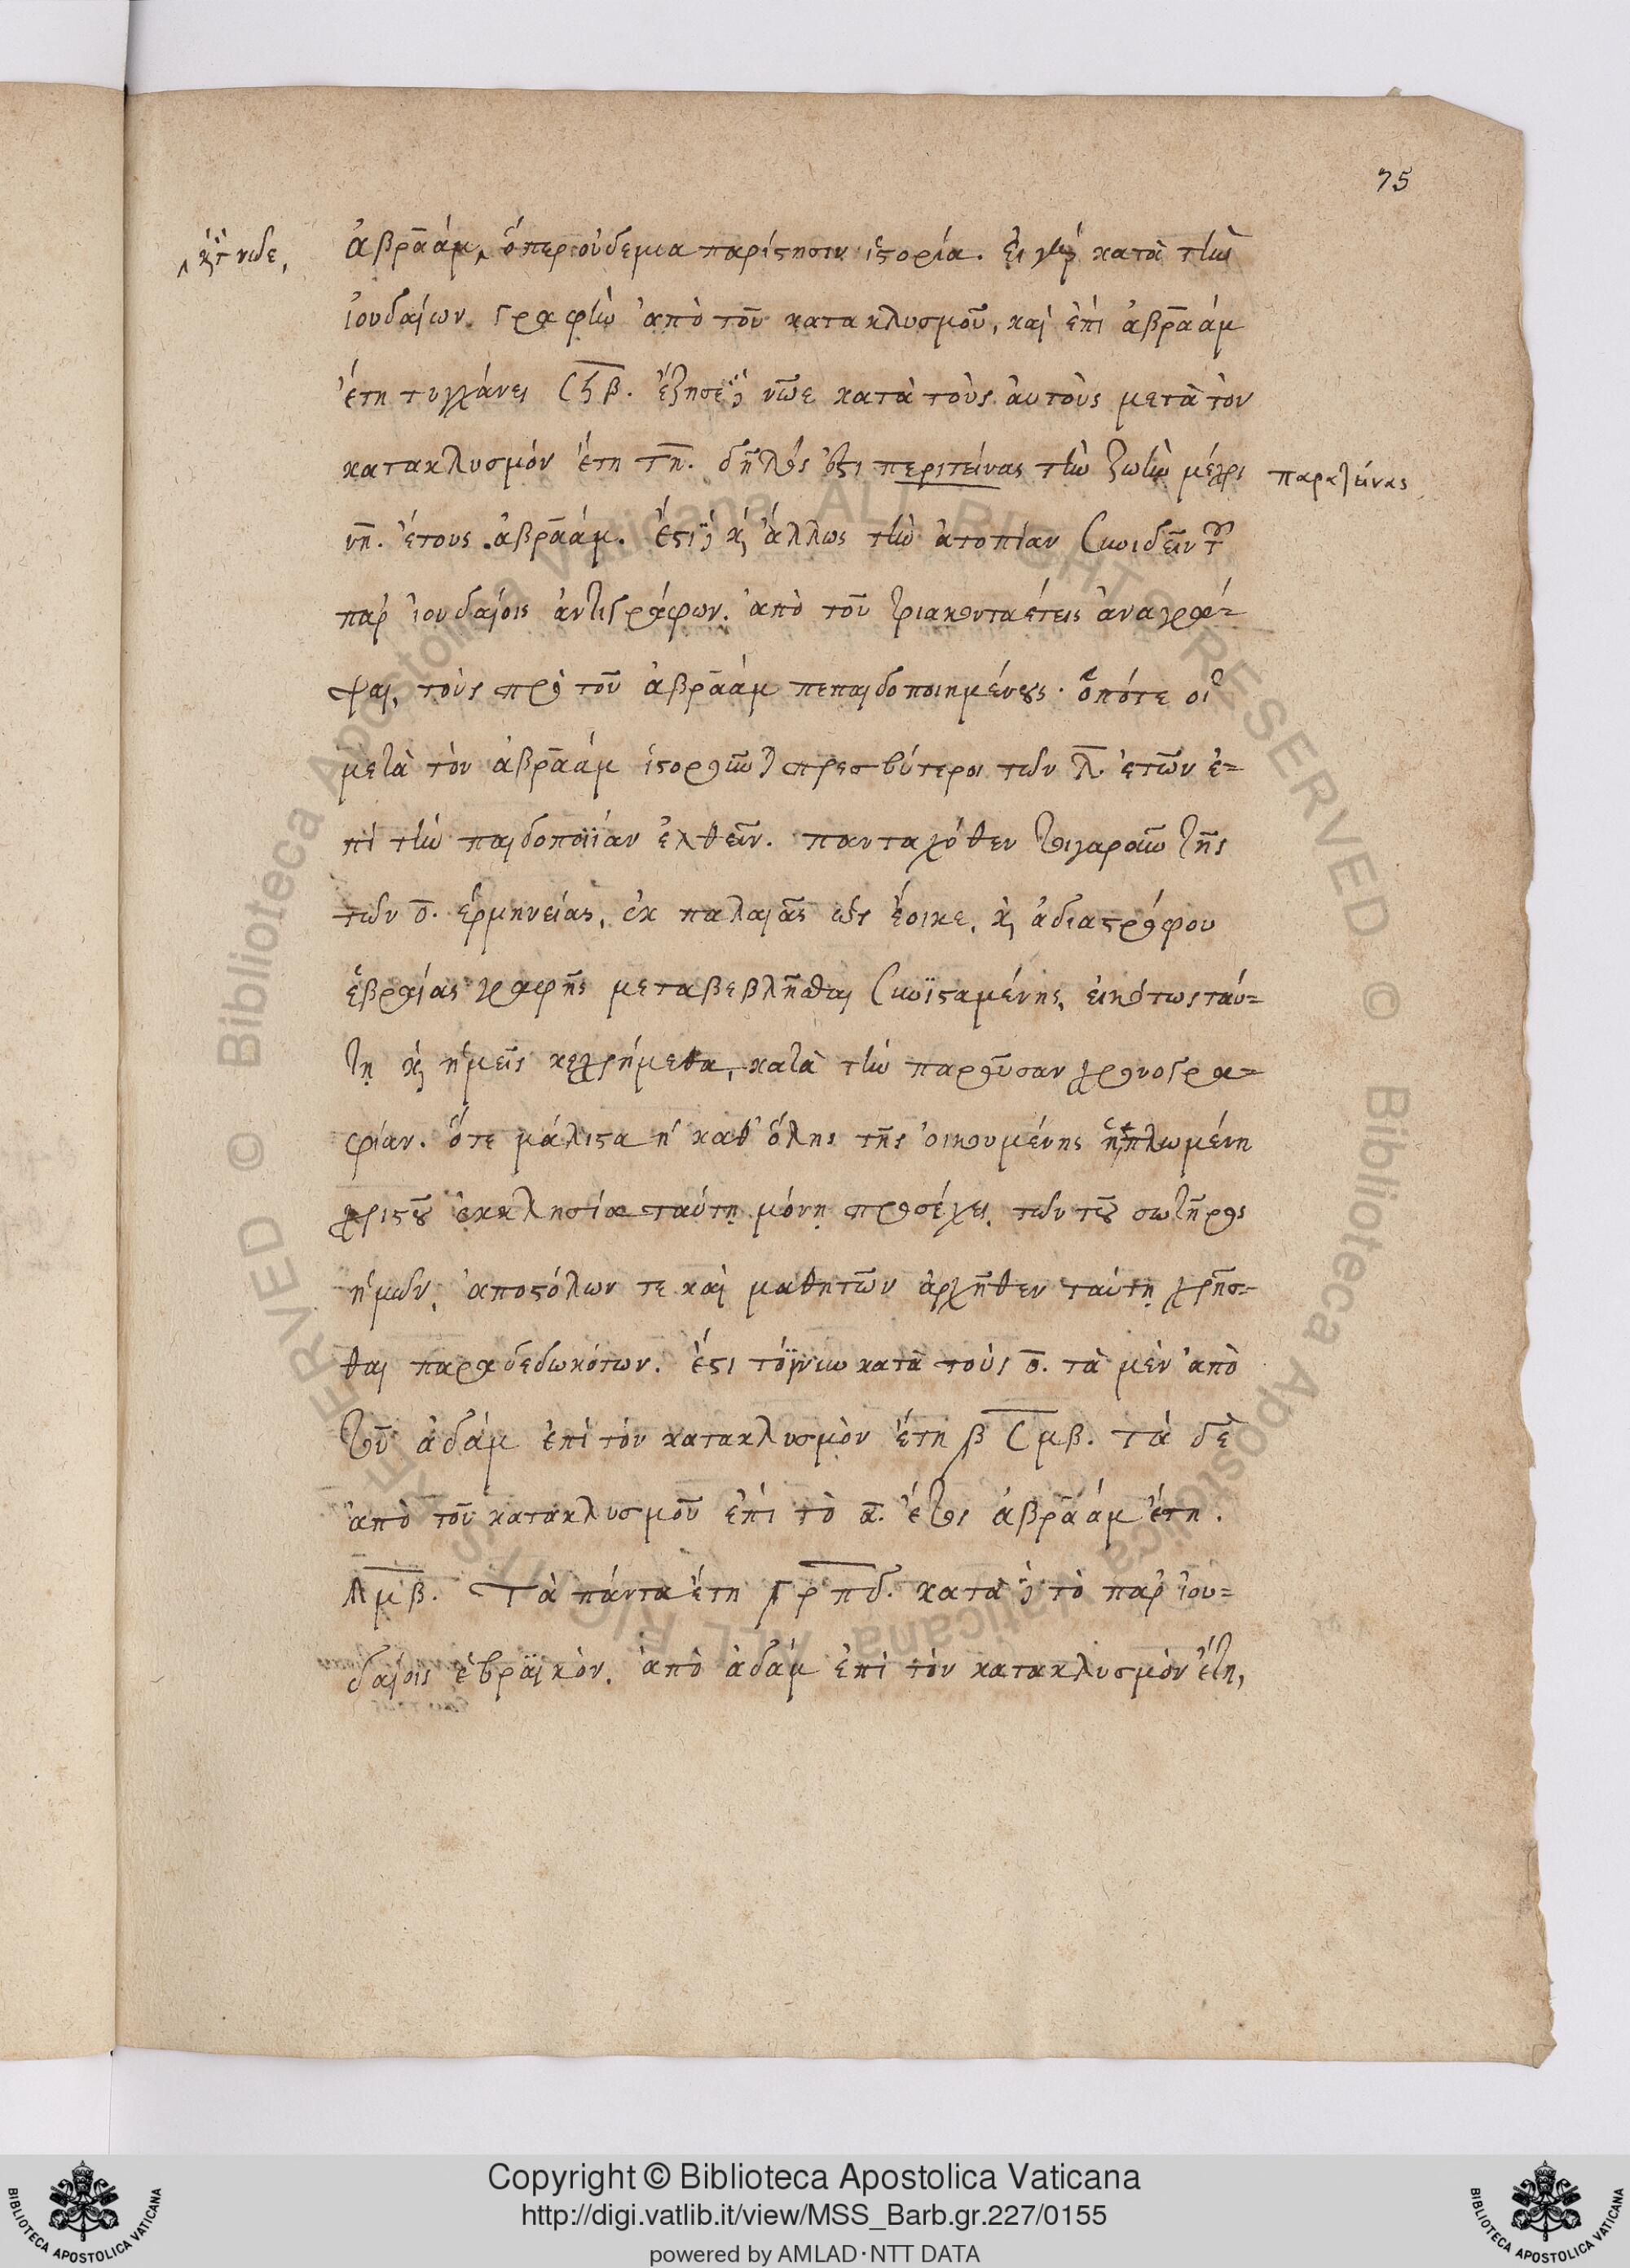 75
ἀβραάμ, ὅπερ οὐδεμια παρίστησιν ἱστορία. εἰ γὰρ κατὰ τὴν
ἰουδαίων γραφὴν ἀπὸ τοῦ κατακλυσμοῦ, καὶ ἐπὶ ἀβραάμ
ἔτη τυγχάνει Ϲϟβ. ἔζησε δὲ νῶε κατὰ τοὺς αὐτοὺς μετὰ τὸν
κατακλυσμόν ἔτη τν. δῆλός ἐστι περιτείνας τὴν ζωὴν μέχρι παρατείνας
νη. ἔτους ἀβραάμ. ἔστι δὲ καὶ ἄλλως τὴν ἀτοπίαν συνιδεῖν τοῦ
παρ ἰουδαίοις ἀντιγράφων. ἀπὸ τοῦ τριακονταέτεις ἀναγρά-
ψαι, τοὺς πρὸ τοῦ ἀβραάμ πεπαιδοποιημένους. ὁπότε οἱ
μετὰ τὸν ἀβραάμ ἱστοροῦνται πρεσβύτεροι τῶν λ. ἐτῶν ἐ-
πὶ τὴν παιδοποιΐαν ἐλθεῖν. πανταχόθεν τοιγαροῦν τῆς
τῶν ο. ἑρμηνείας, ἐκ παλαιᾶς ὡς ἔοικε, καὶ ἀδιαστρόφου
ἑβραίας γραφῆς μεταβεβλῆσθαι συνϊσταμένης, εἰκότως ταύ-
τῃ καὶ ἡμεῖς κεχρήμεθα, κατὰ τὴν παροῦσαν χρονογρα-
φίαν. ὅτε μάλιστα ἡ καθ ὅλης τῆς οἰκουμένης ἡπλωμένη
χριστοῦ ἐκκλησία ταύτῃ μόνῃ προσέχει, τῶν τοῦ σωτῆρος
ἡμῶν, ἀποστόλων τε καὶ μαθητῶν ἀρχῆθεν ταύτῃ χρῆσ-
θαι παραδεδωκότων. ἔστι τοίνυν κατὰ τοὺς ο. τὰ μὲν ἀπὸ
τοῦ ἀδάμ ἐπὶ τὸν κατακλυσμὸν ἔτη ͵βϹμβ. τὰ δὲ
ἀπὸ τοῦ κατακλυσμοῦ ἐπὶ τὸ α. ἔτος ἀβραάμ ἔτη.
ϡμβ. Τὰ πάντα ἔτη ͵γρπδ. κατὰ δὲ τὸ παρ ἰου-
δαίοις ἑβραϊκὸν. ἀπὸ ἀδάμ ἐπὶ τὸν κατακλυσμὸν ἔτη,
Copyright © Biblioteca Apostolica Vaticana
http://digi.vatlib.it/view/MSS_Barb.gr.227/0155
powered by AMLAD·NTT DATA
BIBLIOTECA APOSTOLICA VATICANA
BIBLIOTECA APOSTOLICA VATICANA